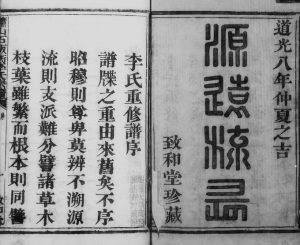 道光八年仲夏之吉
源遠流長
致和堂珍藏
李氏重修譜序
譜牒之重由來舊矣不序
昭穆則尊卑莫辨不溯源
流則支派難分譬諸草木
枝葉雖繁而根本則同譬